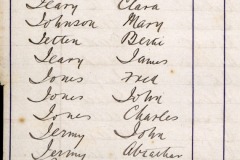 Jeary Clara
Johnson Mary
Jetten
Jeary James
Jones Fred
Jones John
Jones Charles
Jermy John
Jermy Abiathar